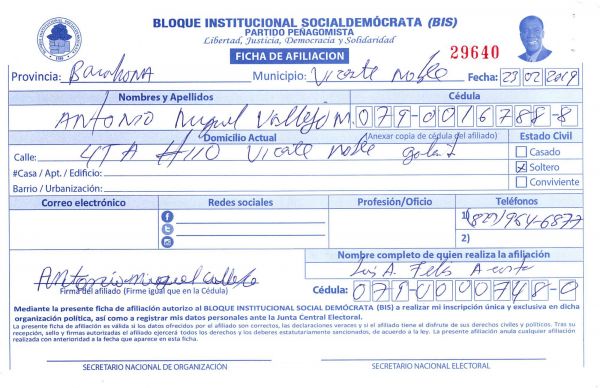 BLOQUE INSTITUCIONAL SOCIALDEMÓCRATA (BIS)
PARTIDO PEÑAGOMISTA
Libertad, Justicia, Democracia y Solidaridad
FICHA DE AFILIACION
29640
Provincia: Barahona Municipio: Vicente Noble Fecha: 23/02/2019
Nombres y Apellidos Cédula
ANTONIO Miguel Vallejo M. 079-0016788-8
Domicilio Actual (Anexar copia de cédula del afiliado) Estado Civil
Calle: 4TA #110 Vicente Noble
Casado
#Casa / Apt. / Edificio:
Soltero
Barrio / Urbanización:
Conviviente
Correo electrónico Redes sociales Profesión/Oficio Teléfonos
1) (829) 964-6877
2)
Nombre completo de quien realiza la afiliación
Luis A. Feliz Acosta
Antonio miguel Vallejo
Firma del afiliado (Firme igual que en la Cédula)
Cédula: 079-0000748-0
Mediante la presente ficha de afiliación autorizo al BLOQUE INSTITUCIONAL SOCIAL DEMÓCRATA (BIS) a realizar mi inscripción única y exclusiva en dicha
organización política, así como a registrar mis datos personales ante la Junta Central Electoral.
La presente ficha de afiliación es válida si los datos ofrecidos por el afiliado son correctos, las declaraciones veraces y si el afiliado tiene el disfrute de sus derechos civiles y políticos. Tras su
recepción, sello y firmas autorizadas el afiliado ejercerá todos los derechos y los deberes estatutariamente sancionados, de acuerdo a la ley. La presente afiliación anula cualquier afiliación
realizada con anterioridad a la fecha que aparece en esta ficha.
SECRETARIO NACIONAL DE ORGANIZACIÓN SECRETARIO NACIONAL ELECTORAL